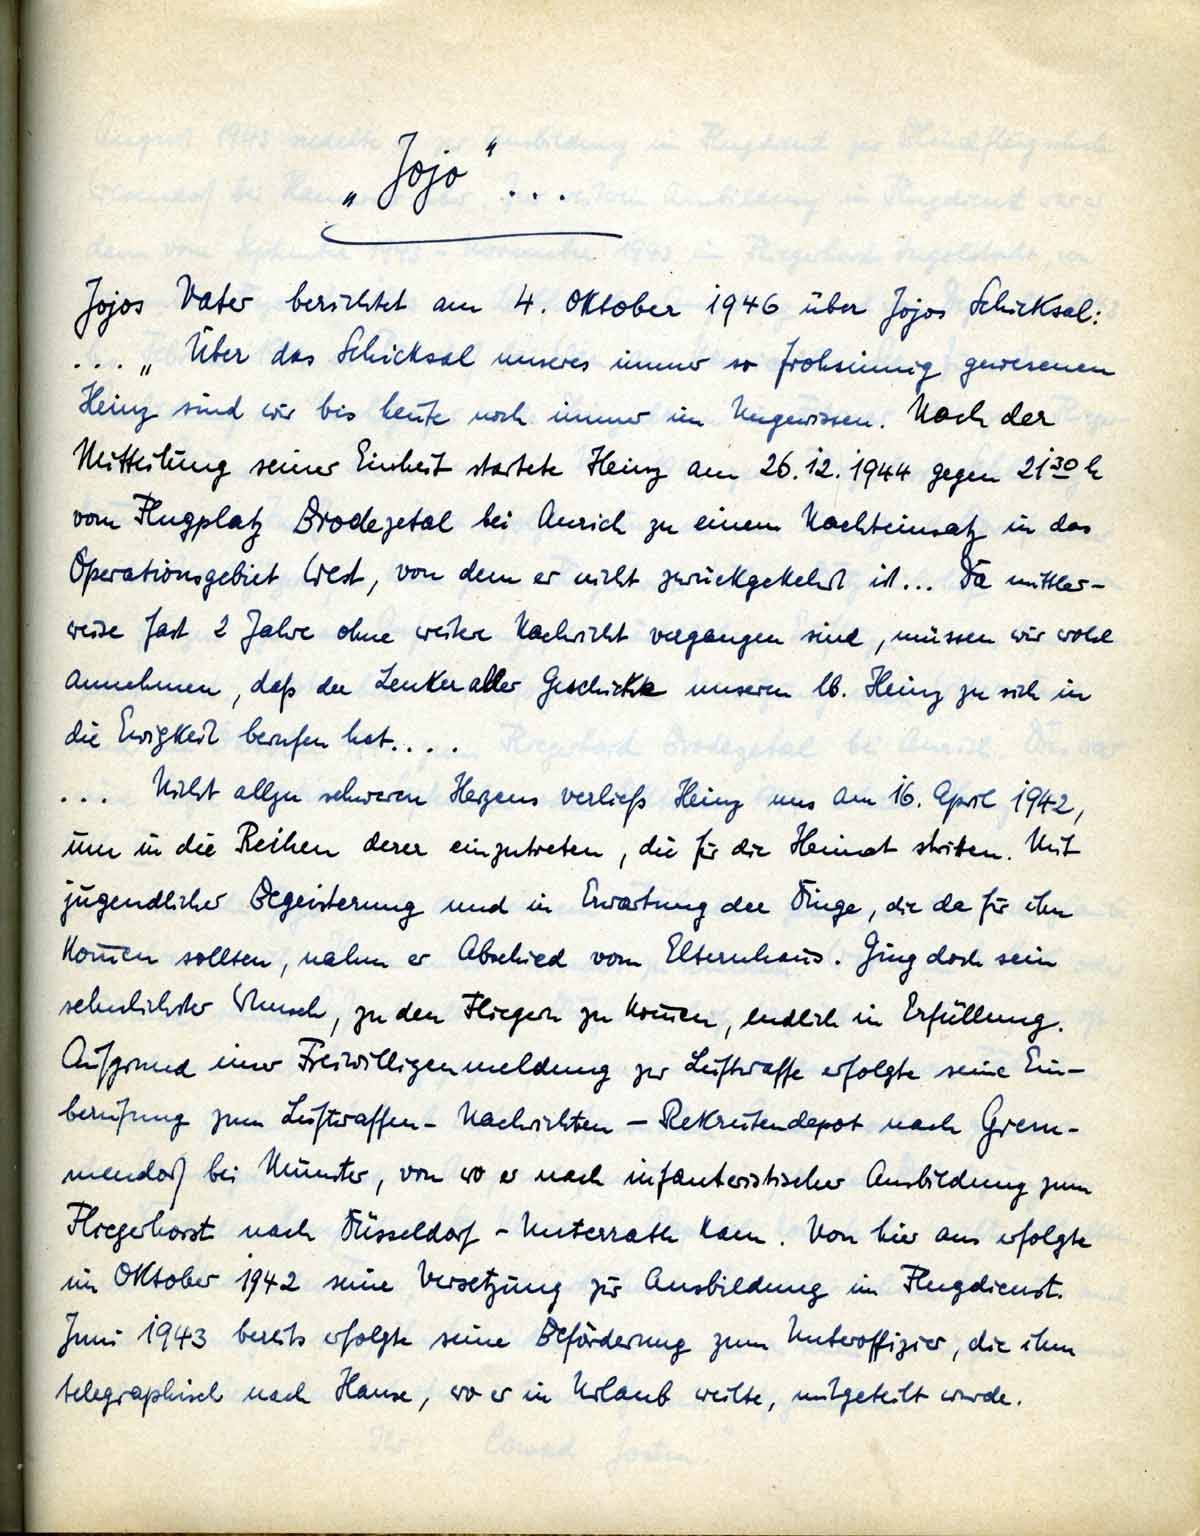 „Jojo“ ...
Jojos Vater berichtet am 4. Oktober 1946 über Jojos Schicksal:
... „Über das Schicksal unseres immer so frohsinnig gewesenen
Heinz sind wir bis heute noch immer im Ungewissen. Nach der
Mitteilung seiner Einheit startete Heinz am 26.12.1944 gegen 21³⁰ h
vom Flugplatz Brodezetal bei Aurich zu einem Nachteinsatz in das
Operationsgebiet West, von dem er nicht zurückgekehrt ist... Da mittler-
weise fast 2 Jahre ohne weitere Nachricht vergangen sind, müssen wir wohl
annehmen, daß der Lenker aller Geschicke unseren lb. Heinz zu sich in
die Ewigkeit berufen hat....
... Nicht allzu schweren Herzens verließ Heinz uns am 16. April 1942,
um in die Reihen derer einzutreten, die für die Heimat stritten. Mit
jugendlicher Begeisterung und in Erwartung der Dinge, die da für ihn
kom̅en sollten, nahm er Abschied vom Elternhaus. Ging doch sein
sehnlichster Wunsch, zu den Fliegern zu kom̅en, endlich in Erfüllung.
Aufgrund einer Freiwilligenmeldung zur Luftwaffe erfolgte seine Ein-
berufung zum Luftwaffen-Nachrichten-Rekrutendepot nach Grem-
mendorf bei Münster, von wo er nach infanteristischer Ausbildung zum
Fliegerhorst nach Düsseldorf-Unterrath kam. Von hier aus erfolgte
im Oktober 1942 seine Versetzung zur Ausbildung im Flugdienst.
Juni 1943 bereits erfolgte seine Beförderung zum Unteroffizier, die ihm
telegraphisch nach Hause, wo er in Urlaub weilte, mitgeteilt wurde.